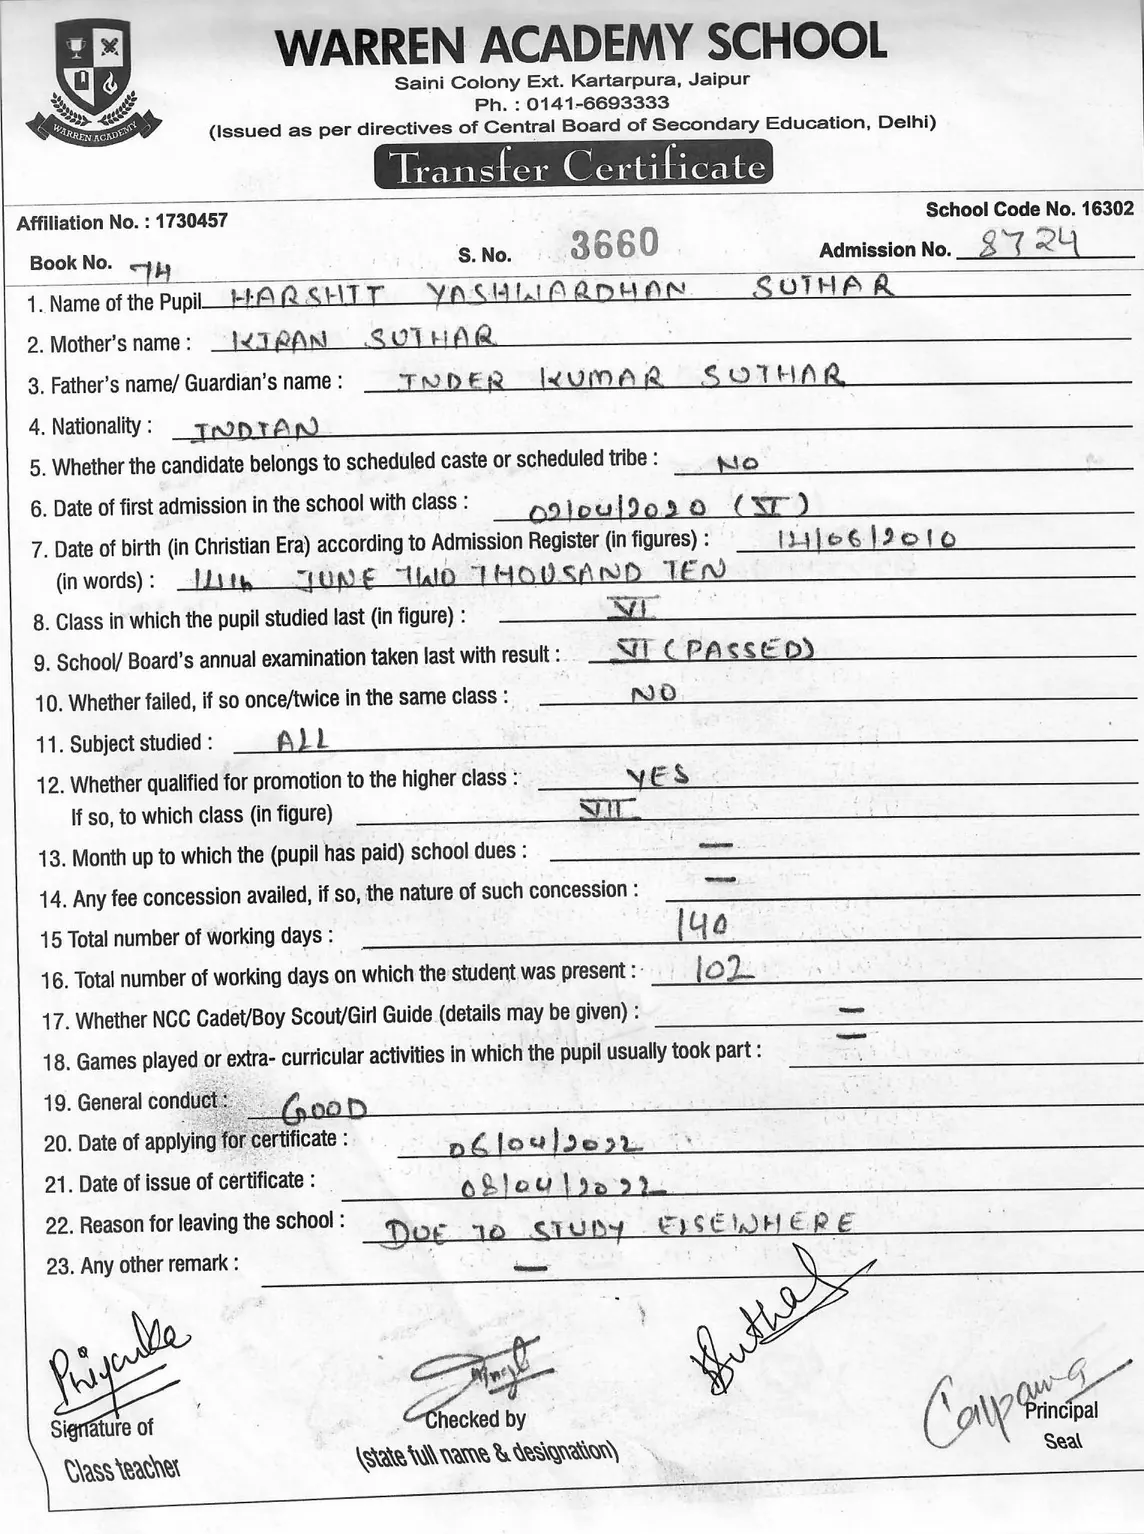 WARREN ACADEMY
WARREN ACADEMY SCHOOL
Saini Colony Ext. Kartarpura, Jaipur
Ph. : 0141-6693333
(Issued as per directives of Central Board of Secondary Education, Delhi)
Transfer Certificate
Affiliation No. : 1730457 School Code No. 16302
Book No. 74 S. No. 3660 Admission No. 8724
1. Name of the Pupil HARSHIT YASHWARDHAN SUTHAR
2. Mother's name : KIRAN SUTHAR
3. Father's name/ Guardian's name : INDER KUMAR SUTHAR
4. Nationality : INDIAN
5. Whether the candidate belongs to scheduled caste or scheduled tribe : NO
6. Date of first admission in the school with class : 02/04/2020 (VI)
7. Date of birth (in Christian Era) according to Admission Register (in figures) : 14/06/2010
(in words) : 14th JUNE TWO THOUSAND TEN
8. Class in which the pupil studied last (in figure) : VI
9. School/ Board's annual examination taken last with result : VI (PASSED)
10. Whether failed, if so once/twice in the same class : NO
11. Subject studied : ALL
12. Whether qualified for promotion to the higher class : YES
If so, to which class (in figure) VII
13. Month up to which the (pupil has paid) school dues : —
14. Any fee concession availed, if so, the nature of such concession : —
15 Total number of working days : 140
16. Total number of working days on which the student was present : 102
17. Whether NCC Cadet/Boy Scout/Girl Guide (details may be given) : —
18. Games played or extra- curricular activities in which the pupil usually took part : —
19. General conduct : GOOD
20. Date of applying for certificate : 06/04/2022
21. Date of issue of certificate : 08/04/2022
22. Reason for leaving the school : DUE TO STUDY ELSEWHERE
23. Any other remark : —
Priyanka
Signature of
Class teacher
Checked by
(state full name & designation)
Suthar
Principal
Seal